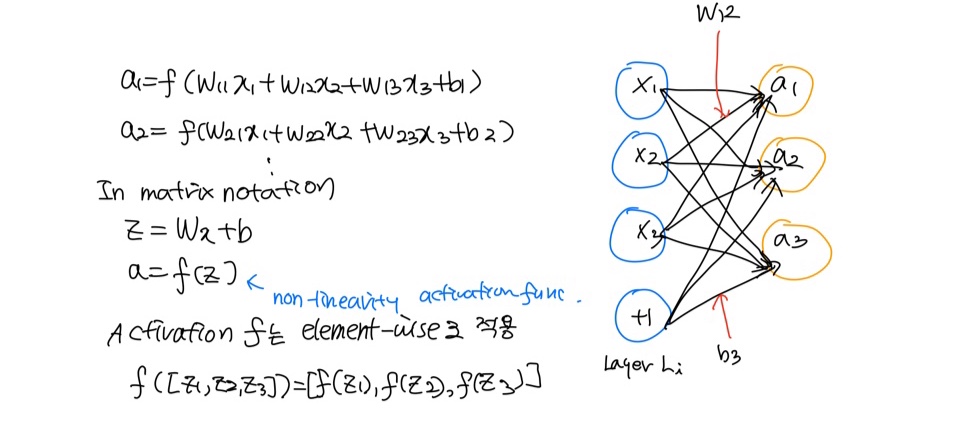 a1=f(W11x1+W12x2+W13x3+b1)
a2=f(W21x1+W22x2+W23x3+b2)
⋮
In matrix notation
z=Wx+b
a=f(z)
non-linearity activation func.
Activation f는 element-wise로 적용
f([z1,z2,z3])=[f(z1),f(z2),f(z3)]
W12
x1 a1
x2 a2
x3 a3
+1
Layer Li b3